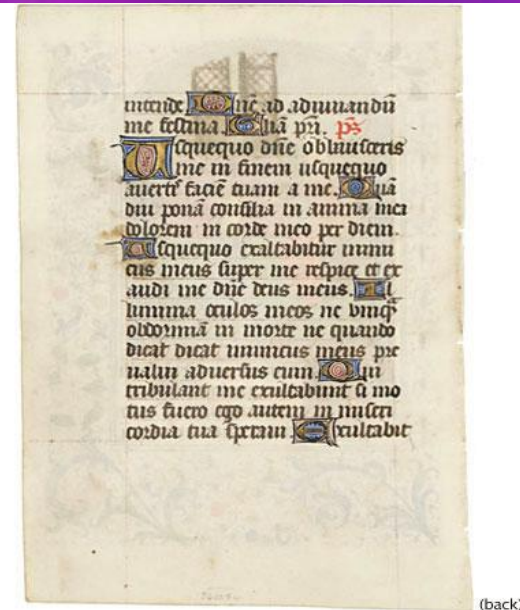 intende Dn̄e ad adiuuandū
me festina. Gl̄ia pr̄i. ps̄
Usquequo dn̄e obliuisceris
me in finem usquequo
auertis faciē tuam a me. Quā
diu ponā consilia in anima mea
dolorem in corde meo per diem.
Usquequo exaltabitur inimi
cus meus super me respice et ex
audi me dn̄e deus meus. Il
lumina oculos meos ne vmq̄
obdormiā in morte ne quando
dicat dicat inimicus meus pre
ualui aduersus eum. Qui
tribulant me exultabunt si mo
tus fuero ego autem in miseri
cordia tua speraui. Exultabit
(back)